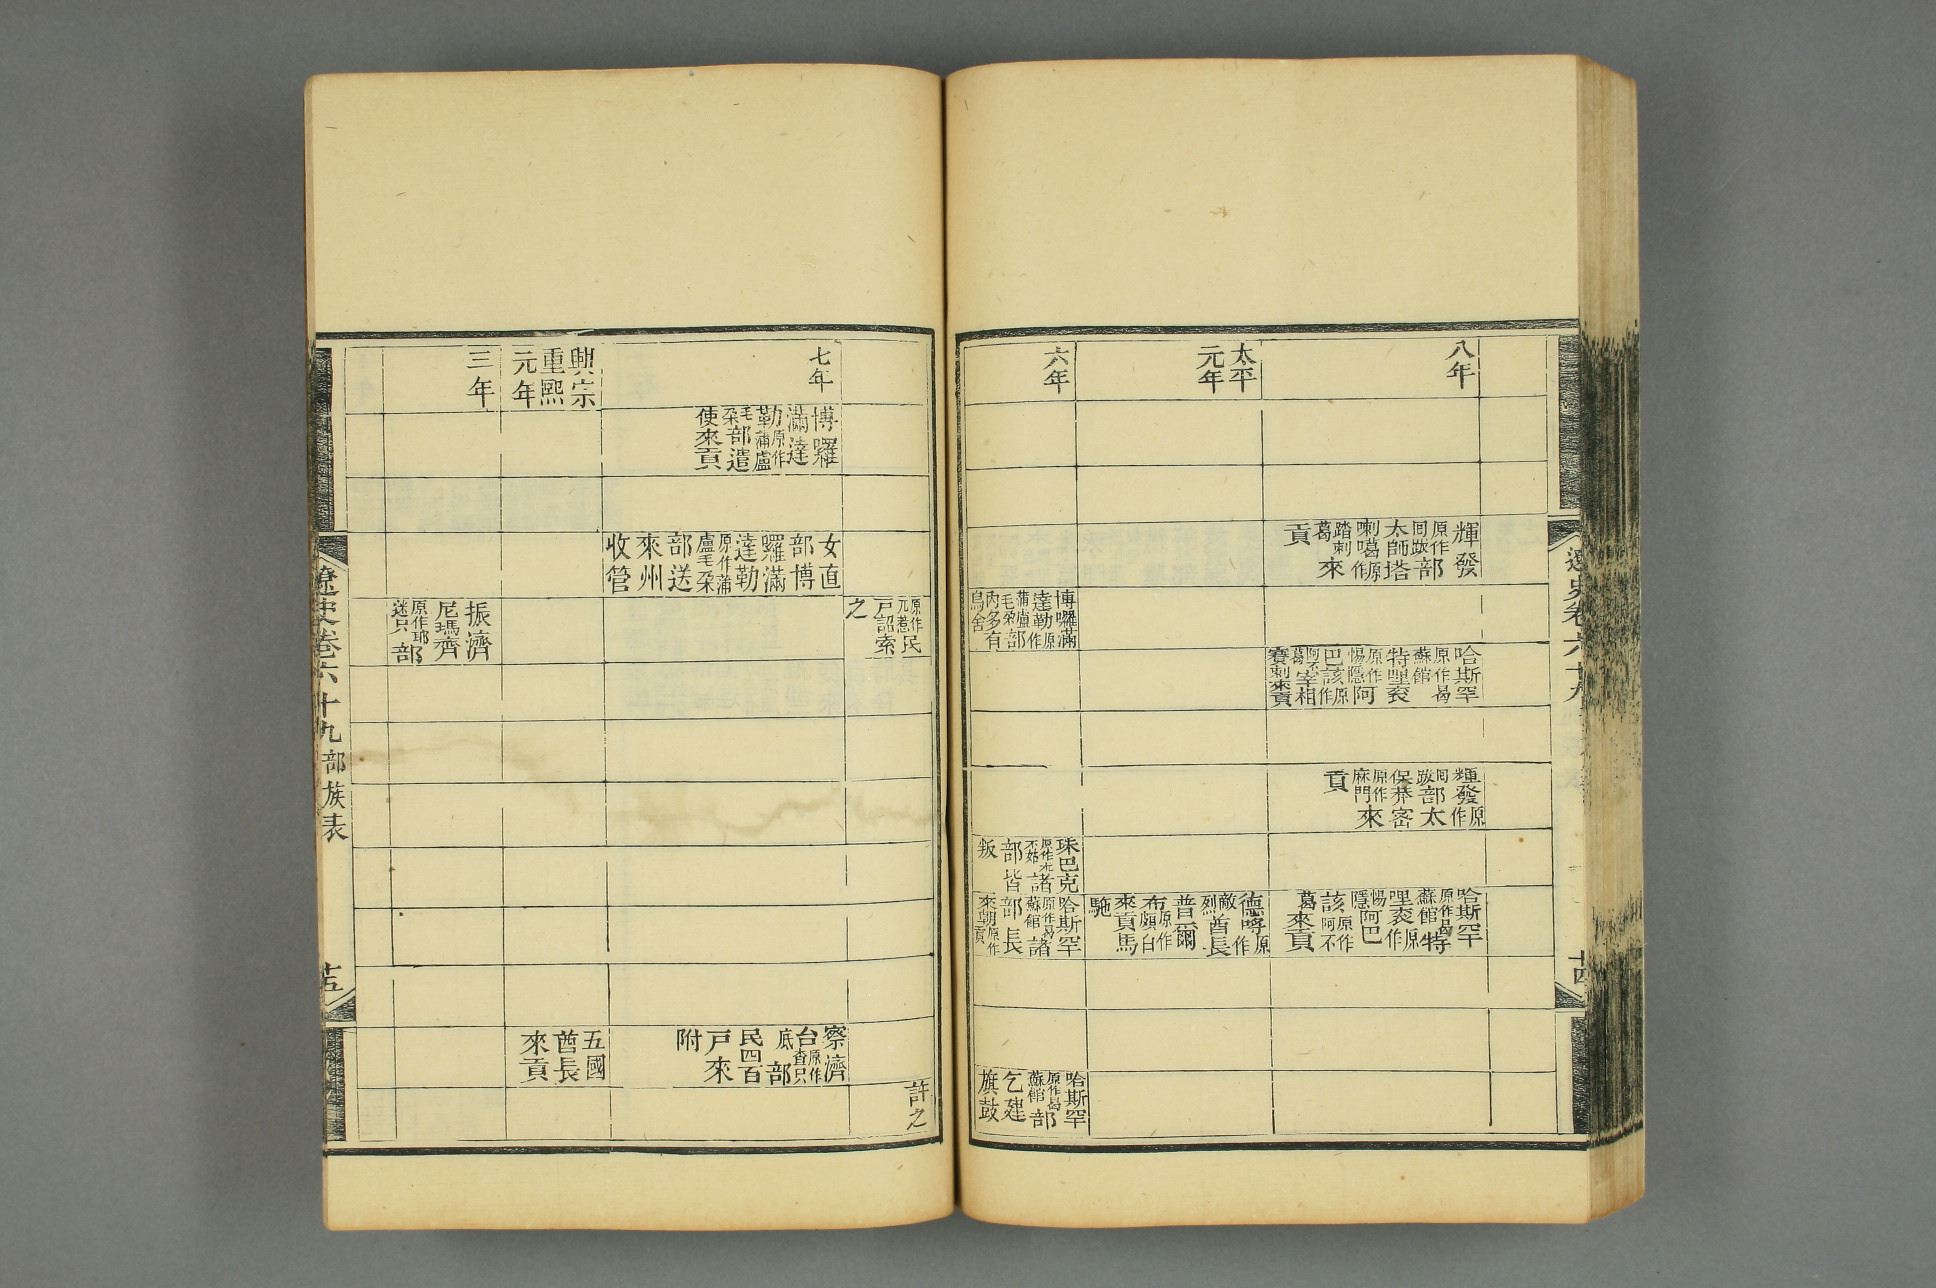 八年
輝發
原作
囘跋
部
太師塔
喇噶
原作
踏剌
葛
來
貢
哈斯罕
原作曷
蘇館
特哩衮
原作
惕隱
阿
巴該
原作
阿不
葛
宰相
賽剌來貢
輝發
原作
囘跋
部太
保恭密
原作
麻門
來
貢
哈斯罕
原作曷
蘇館
特
哩衮
原作
惕隱
阿巴
該
原作
阿不
葛
來貢
太平
元年
德哷
原作
敵烈
酋長
普爾
布
原作
頗白
來貢馬
駞
六年
博囉滿
達勒
原作
蒲盧
毛朶
部
内多有
烏舍
原作
元惹
民
戸詔索
之
珠巴克
原作朮
不姑
諸
部皆
叛
哈斯罕
原作曷
蘇館
諸
部長
來朝
哈斯罕
原作曷
蘇館
部
乞建
旗鼓
許之
遼史卷六十九
十四
七年
博囉
滿達
勒
原作
蒲盧
毛朶
部遣
使來貢
女直
部博
囉滿
達勒
原作蒲
盧毛朶
部送
來州
收管
察濟
台
原作
查只
底
部
民四百
戸來
附
興宗
重熙
元年
五國
酋長
來貢
三年
振濟
尼瑪齊
原作耶
迷只
部
遼史卷六十九
部族表
十五